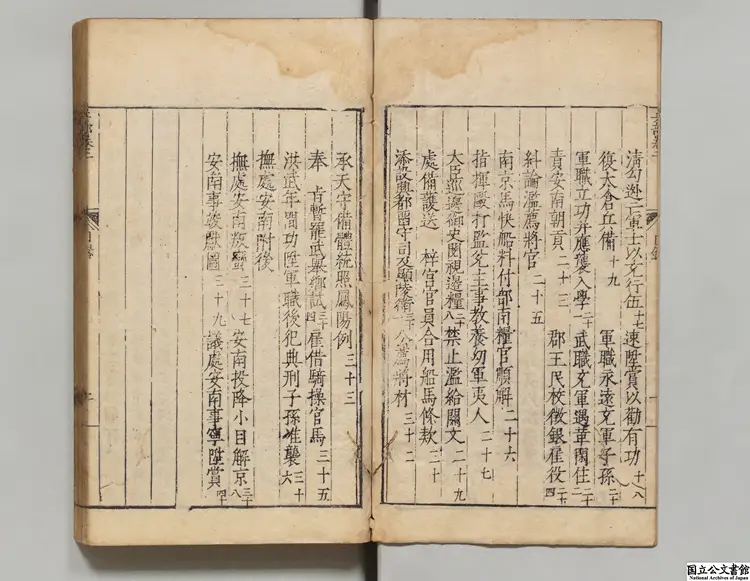 清勾逃亡軍士以充行伍 十七 速陞賞以勸有功 十八
復太倉兵備 十九 軍職永遠充軍子孫 二十
軍職立功弁應襲入學 二十一 武職充軍遇革閑住 二十二
責安南朝貢 二十三 郡王民校徵銀雇役 二十四
糾論濫薦將官 二十五
南京馬快船料付部南糧官順解 二十六
指揮毆打監兌主事教養幼軍夷人 二十七
大臣巡邊御史閱視邊糧 二十八 禁止濫給關文 二十九
處備護送 梓宮官員合用船馬條欵 三十
添設興都留守司及顯陵衛 三十一 公薦將材 三十二
承天守備體統照鳳陽例 三十三
奉 旨暫罷武舉鄉試 三十四 雇借騎操官馬 三十五
洪武年間功陞軍職後犯典刑子孫准襲 三十六
撫處安南附後
撫處安南叛蠻 三十七 安南投降小目解京 三十八
安南事竣獻圖 三十九 議處安南事寧陞賞 四十
目錄
国立公文書館
National Archives of Japan